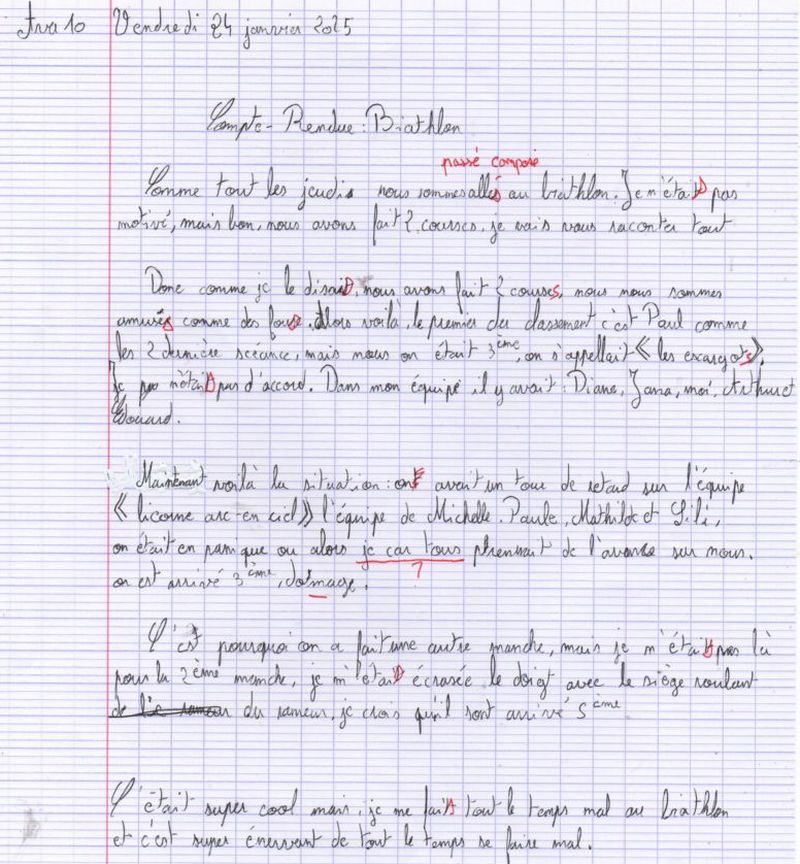 Vendredi 24 janvier 2025
Compte-Rendue : Biathlon
passé composé
Comme tout les jeudis nous sommes allés au biathlon. Je n'étais pas
motivé, mais bon, nous avons fait 2 courses, je vais vous raconter tout
Donc comme je le disais, nous avons fait 2 courses, nous nous sommes
amusés comme des fous. Alors voilà, le premier du classement c'est Paul comme
les 2 dernière scéance, mais nous on était 3ème, on s'appellait « les exargots ».
Je n'étais pas d'accord. Dans mon équipe il y avait : Diane, Jana, moi, Arthur et
Edouard.
Maintenant voilà la situation : on avait un tour de retard sur l'équipe
« licorne arc-en ciel » l'équipe de Michelle. Paule, Mathilde et Lili,
on était en panique ou alors je car tous phrenait de l'avance sur nous.
?
on est arrivé 3ème, domage.
C'est pourquoi on a fait une autre manche, mais je n'étais pas là
pour la 2ème manche, je m'étais écrasée le doigt avec le siège roulant
du rameur, je crois qu'il sont arrivé 5ème
C'était super cool mais, je me fais tout le temps mal au biathlon
et c'est super énervant de tout le temps se faire mal.